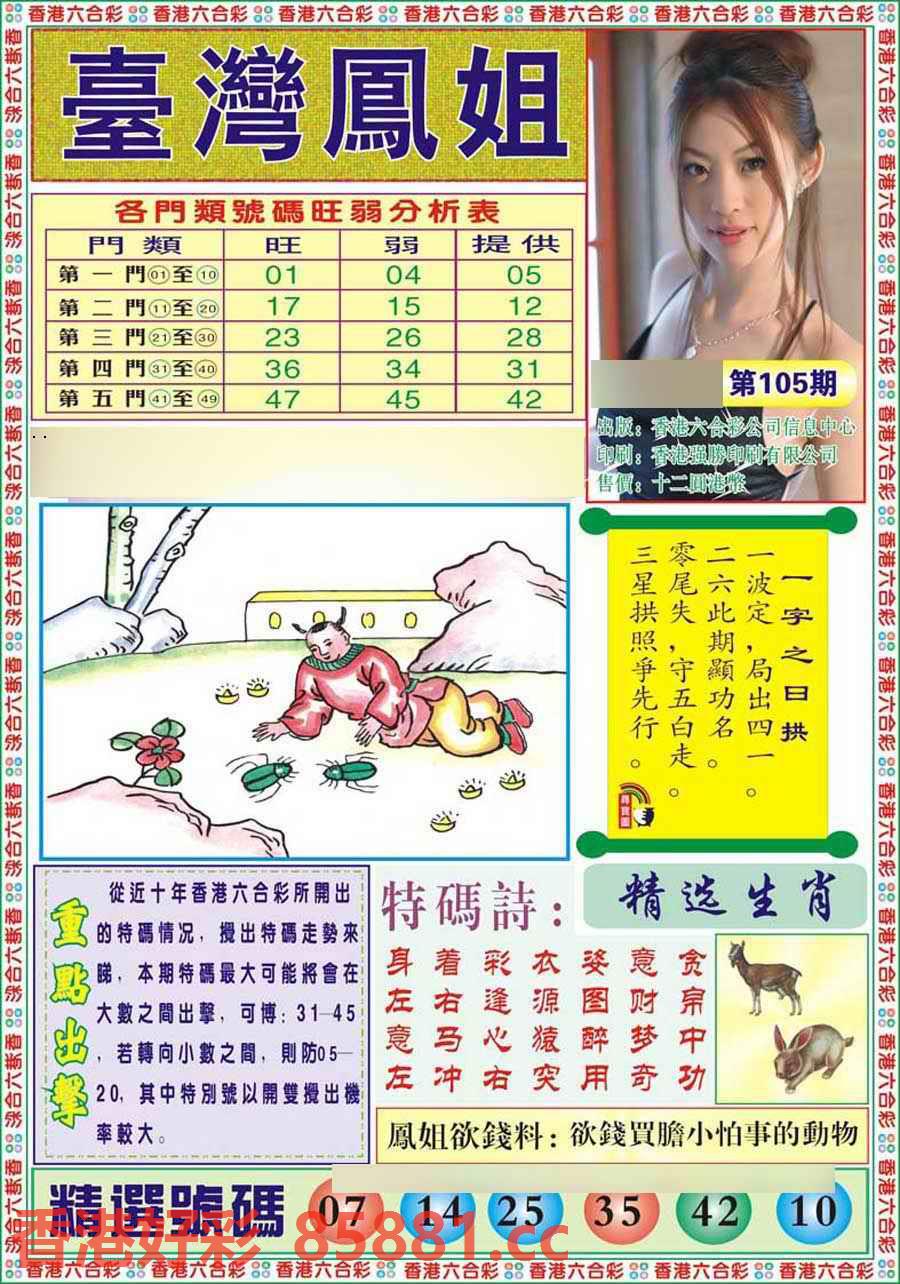 香港六合彩 香港六合彩 香港六合彩 香港六合彩 香港六合彩 香港六合彩 香港六合彩
臺灣鳳姐
各門類號碼旺弱分析表
門類 旺 弱 提供
第一門01至10 01 04 05
第二門11至20 17 15 12
第三門21至30 23 26 28
第四門31至40 36 34 31
第五門41至49 47 45 42
第105期
出版：香港六合彩公司信息中心
印刷：香港强勝印刷有限公司
售價：十二圓港幣
一字之曰拱
一波定，局出四一。
二六此期顯功名。
零尾失，守五白走。
三星拱照爭先行。
尋寶圖
重點出擊
從近十年香港六合彩所開出
的特碼情况，攪出特碼走勢來
睇，本期特碼最大可能將會在
大數之間出擊，可博：31—45
，若轉向小數之間，則防05—
20，其中特別號以開雙攪出機
率較大。
特碼詩：
身着彩衣姿意贪
左右逢源图财帛
意马心猿醉梦中
左冲右突用奇功
精选生肖
鳳姐欲錢料：欲錢買膽小怕事的動物
精選號碼 07 14 25 35 42 10
香港好彩 85881.cc
香港六合彩 香港六合彩 香港六合彩 香港六合彩 香港六合彩 香港六合彩 香港六合彩